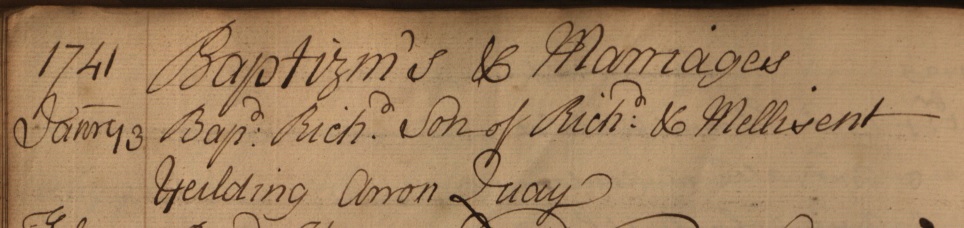 1741 Baptizm's & Marriages
Janry 13 Bapd: Richd: Son of Richd: & Mellisent
Yeilding Arron Quay